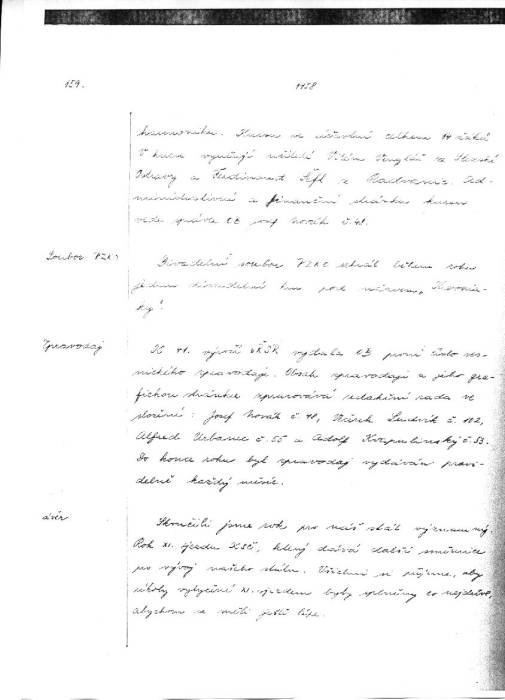 159.
1958
harmoniku. Kursu se účastní celkem 14 žáků
V kurse vyučují učitelé Vilém ze Slezské
Ostravy a Ferdinand Šefl z Radvanic. Ad-
ministrativní a finanční stránku kursu
vede správce OB Josef Novák č. 48.
Soubor VZKG
Divadelní soubor VZKG sehrál během roku
jednu divadelní hru pod názvem „
Zpravodaj
K 41. výročí VŘSR vydala OB první číslo ves-
nického zpravodaje. Obsah zpravodaje a jeho gra-
fickou stránku zpracovává redakční rada ve
složení: Josef Novák č. 48, Ludvík č. 102,
Alfred Urbanec č. 55 a Adolf č. 53.
Do konce roku byl zpravodaj vydáván pravi-
delně každý měsíc.
ávěr
Skončili jsme rok pro náš stát významný.
Rok XI. sjezdu KSČ, který dává další směrnice
pro vývoj našeho státu. Všichni si přejeme, aby
úkoly vytyčené XI. sjezdem byly splněny co nejdříve,
abychom se měli ještě lépe.